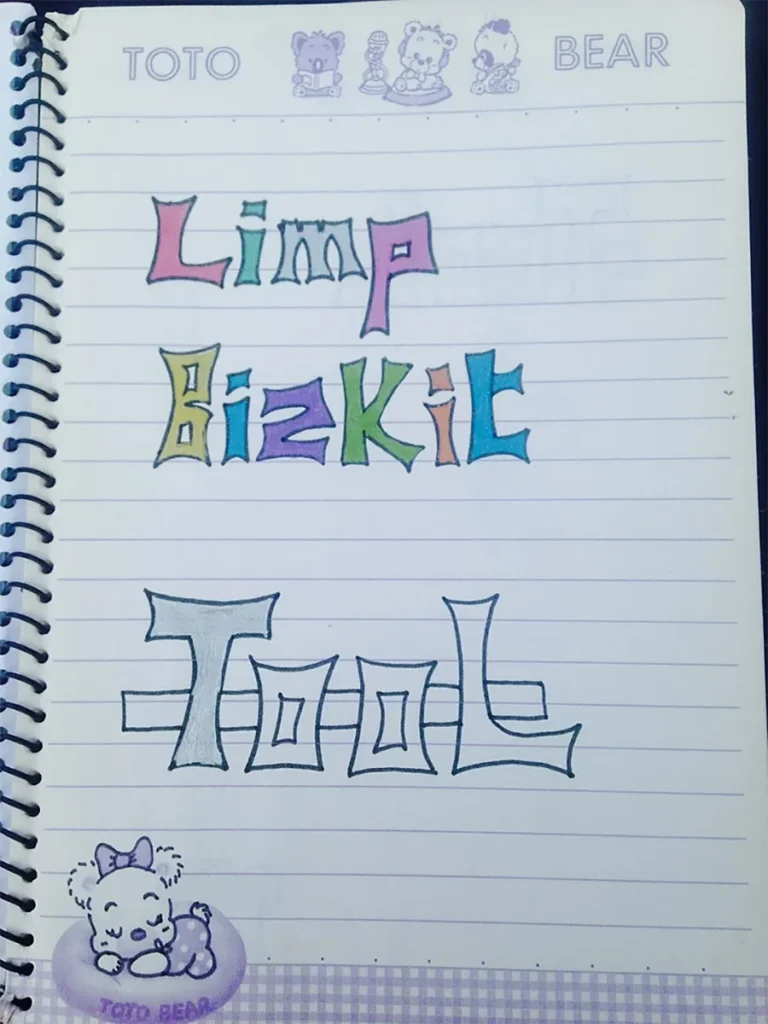 TOTO BEAR
Limp
Bizkit
Tool
TOTO BEAR